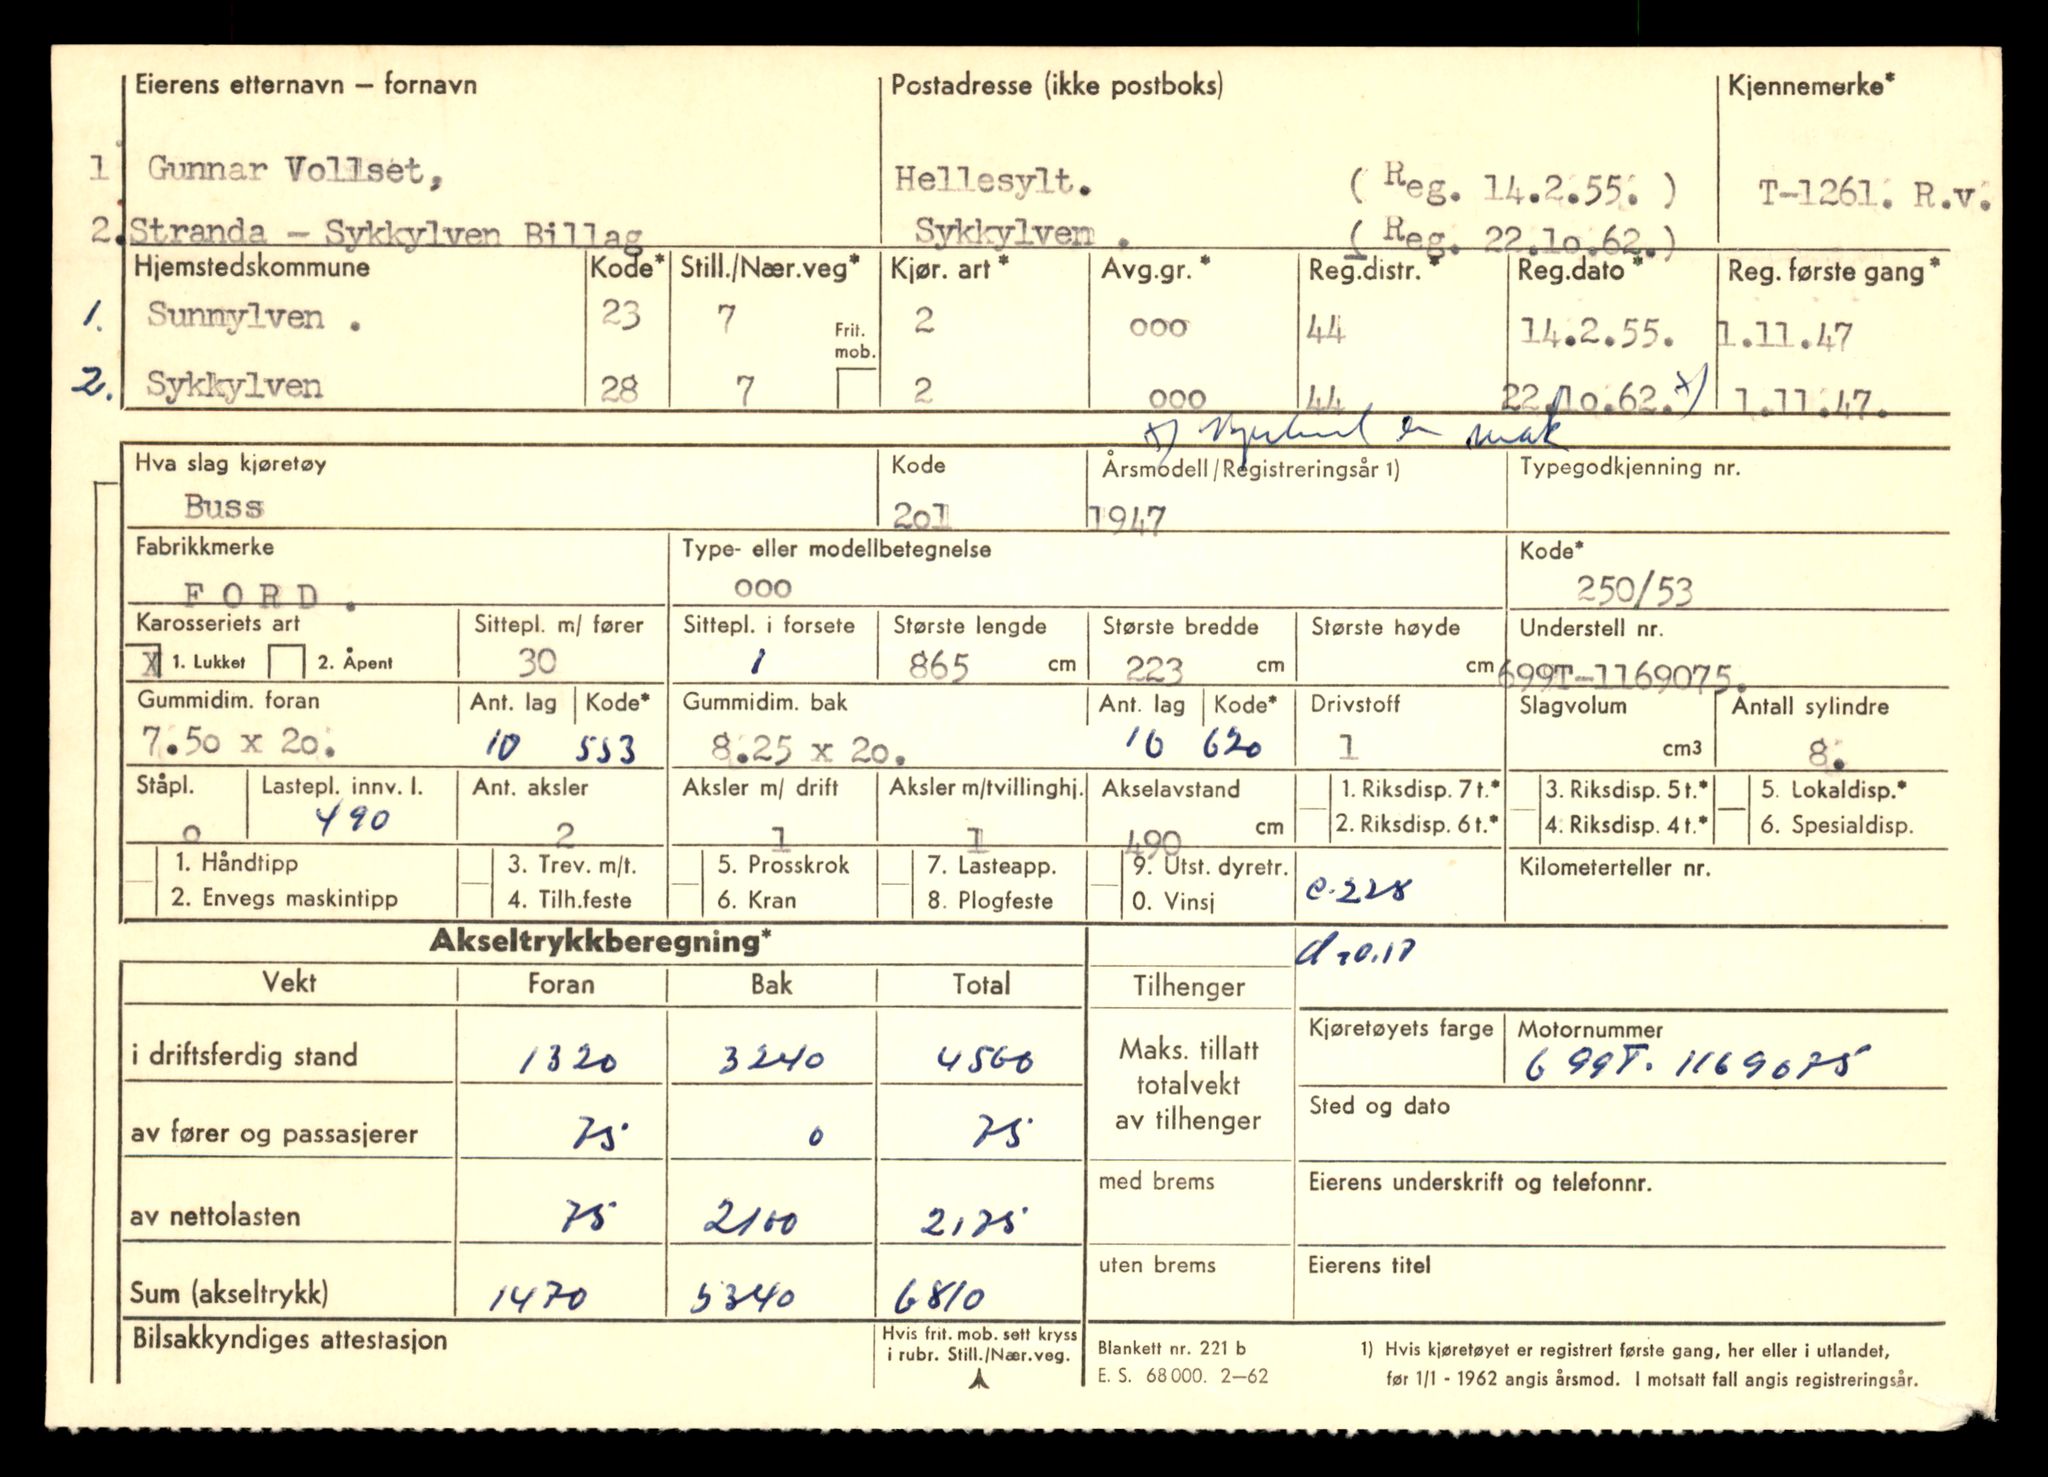 Eierens etternavn – fornavn Postadresse (ikke postboks) Kjennemerke*
1 Gunnar Vollset, Hellesylt. ( Reg. 14.2.55. ) T-1261. R.v.
2. Stranda - Sykkylven Billag Sykkylven . ( Reg. 22.lo.62.)
Hjemstedskommune Kode* Still./Nær.veg* Kjør. art* Avg.gr.* Reg.distr.* Reg.dato* Reg. første gang*
1. Sunnylven . 23 7 Frit. mob. 2 ooo 44 14.2.55. 1.11.47
2. Sykkylven 28 7 2 ooo 44 22.lo.62. x) 1.11.47.
x) en
Hva slag kjøretøy Kode Årsmodell/Registreringsår 1) Typegodkjenning nr.
Buss 2o1 1947
Fabrikkmerke Type- eller modellbetegnelse Kode*
F O R D . ooo 250/53
Karosseriets art Sittepl. m/ fører Sittepl. i forsete Største lengde Største bredde Største høyde Understell nr.
X 1. Lukket 2. Åpent 30 1 865 cm 223 cm cm 699T-1169075.
Gummidim. foran Ant. lag Kode* Gummidim. bak Ant. lag Kode* Drivstoff Slagvolum Antall sylindre
7.50 x 2o. 10 553 8.25 x 2o. 10 620 1 cm3 8.
Ståpl. Lastepl. innv. l. Ant. aksler Aksler m/ drift Aksler m/tvillinghj. Akselavstand 1. Riksdisp. 7 t.* 3. Riksdisp. 5 t.* 5. Lokaldisp.*
o 490 2 1 1 490 cm 2. Riksdisp. 6 t.* 4. Riksdisp. 4 t.* 6. Spesialdisp.
1. Håndtipp 3. Trev. m/t. 5. Prosskrok 7. Lasteapp. 9. Utst. dyretr. Kilometerteller nr.
2. Envegs maskintipp 4. Tilh.feste 6. Kran 8. Plogfeste 0. Vinsj c-228
Akseltrykkberegning* d=0.17
Vekt Foran Bak Total Tilhenger
i driftsferdig stand 1320 3240 4560
Maks. tillatt
totalvekt
av tilhenger
Kjøretøyets farge Motornummer
699T. 1169075
av fører og passasjerer 75 0 75
Sted og dato
av nettolasten 75 2100 2175
med brems Eierens underskrift og telefonnr.
Sum (akseltrykk) 1470 5340 6810
uten brems Eierens titel
Bilsakkyndiges attestasjon
Hvis frit. mob. sett kryss
i rubr. Still./Nær.veg.
Blankett nr. 221 b
E. S. 68 000. 2–62
1) Hvis kjøretøyet er registrert første gang, her eller i utlandet,
før 1/1 - 1962 angis årsmod. I motsatt fall angis registreringsår.